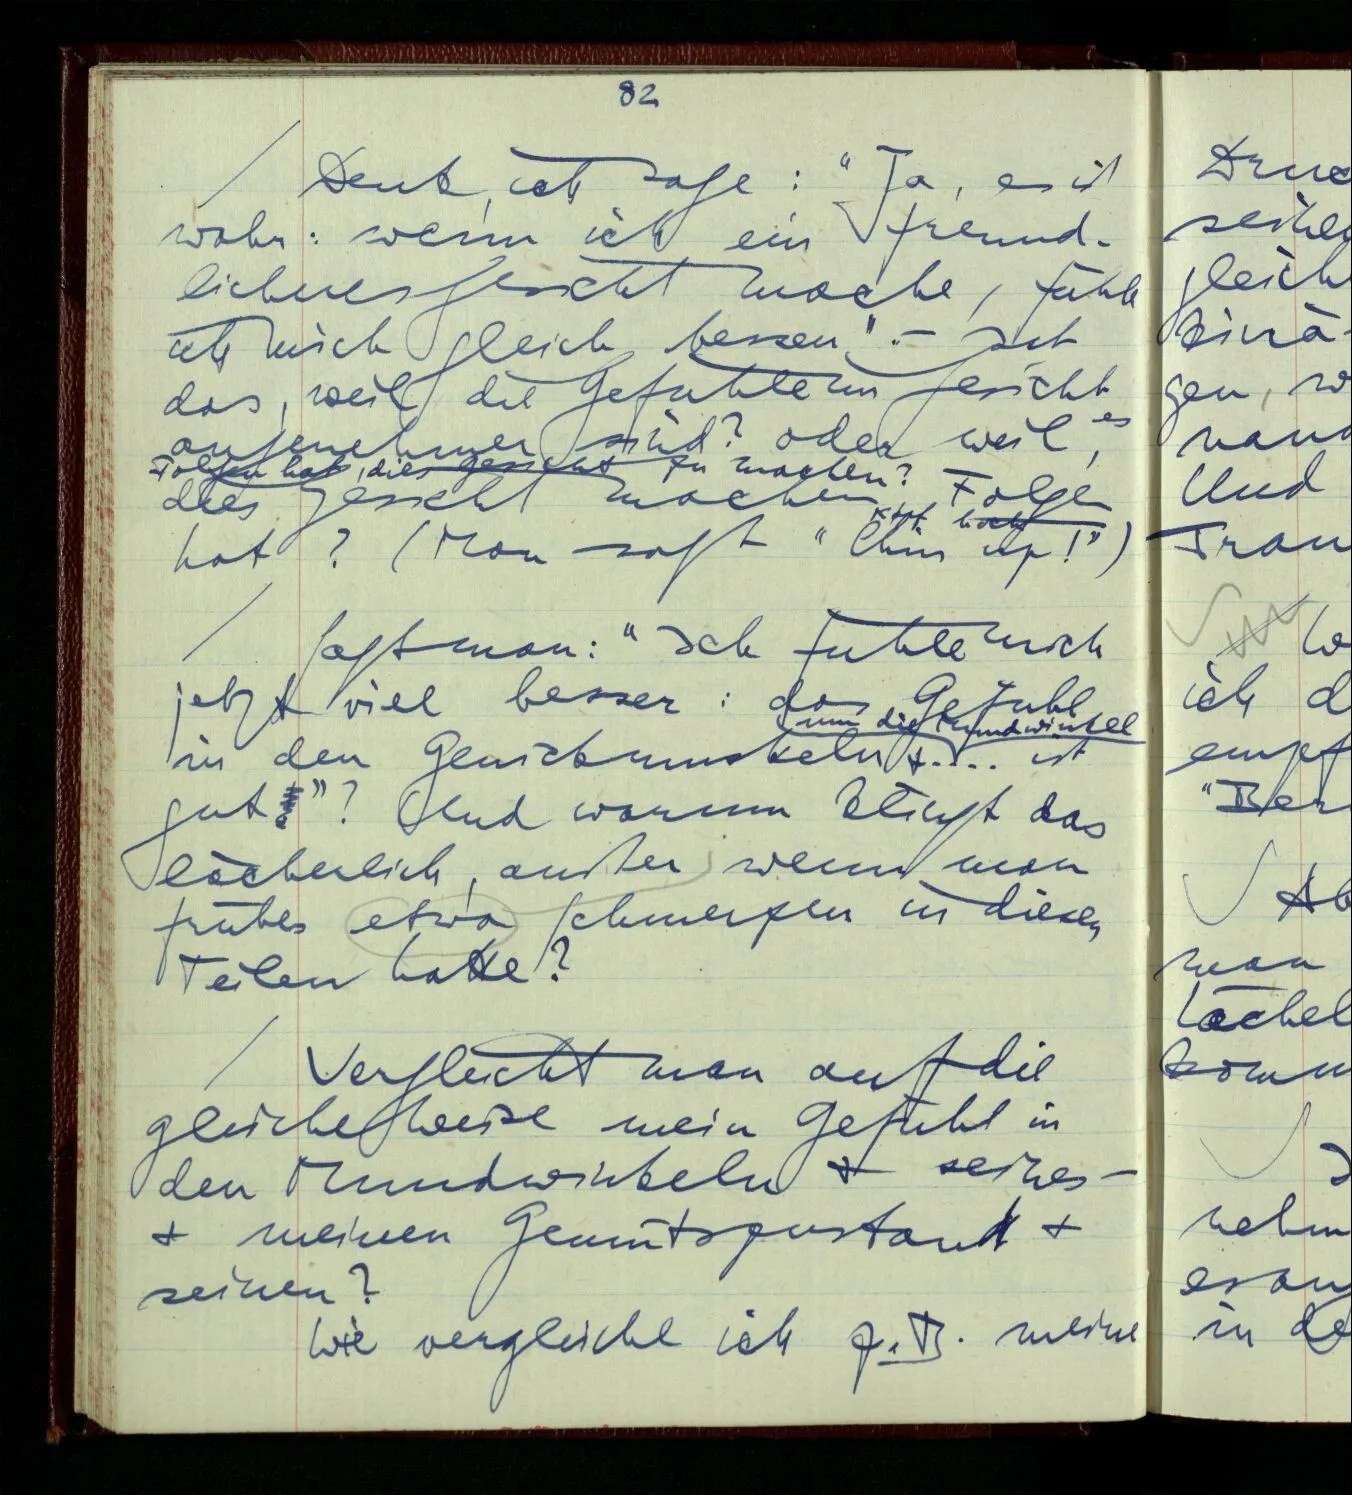 82
/ Denk, ich sage: "Ja, es ist
wahr: wenn ich ein freund-
licheres Gesicht mache, fühle
ich mich gleich besser". – Ist
das, weil die Gefühle im Gesicht
angenehmer sind? oder weil, es
Folgen hat, dies Gesicht zu machen?
dies Gesicht machen, Folgen
hat? (Man sagt "Chin up!")
Kopf hoch
/ Sagt man: "Ich fühle mich
jetzt viel besser: das Gefühl
um die Mundwinkel
in den Gesichtsmuskeln + .... ist
gut"? Und warum klingt das
lächerlich, außer wenn man
früher etwa Schmerzen in diesen
Teilen hatte?
/ Vergleicht man auf die
gleiche Weise mein Gefühl in
den Mundwinkeln + seines –
+ meinen Gemütszustand +
seinen?
Wie vergleiche ich z.B. meine
seine
gleich
gen, w
Und
ich d
empf
"Ber
man
Lächel
komm
nehm
in de